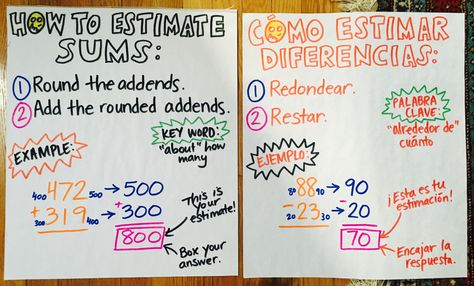 HOW TO ESTIMATE
SUMS:
1 Round the addends.
2 Add the rounded addends.
KEY WORD:
"about" how
many
EXAMPLE:
400 472 500 → 500
+ 319 400 → + 300
300
800
This is
your
estimate!
Box your
answer.
CÓMO ESTIMAR
DIFERENCIAS:
1 Redondear.
2 Restar.
PALABRA
CLAVE:
"alrededor de"
cuánto
EJEMPLO:
80 88 90 → 90
- 20 23 30 → - 20
70
¡Esta es tu
estimación!
Encajar la
respuesta.